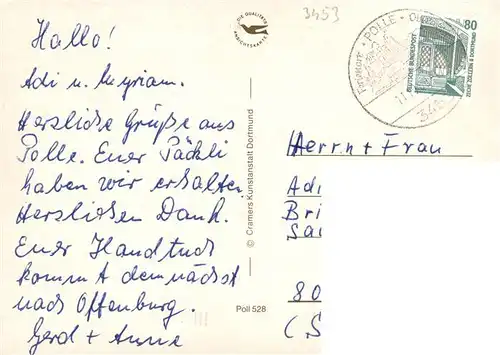 Hallo!
Adi u. Myriam.
Herzliche Grüße aus
Polle. Euer Päckli
haben wir erhalten,
Herzlichen Dank.
Euer Handtuch
kommt demnächst
nach Offenburg.
Gerd + Anne
DIE QUALITÄTS
ANSICHTSKARTE
© Cramers Kunstanstalt Dortmund
Poll 528
3453
POLLE
345
80
DEUTSCHE BUNDESPOST
ZECHE ZOLLERN II DORTMUND
Herrn + Frau
Adi
Bri
Sa
80
(S